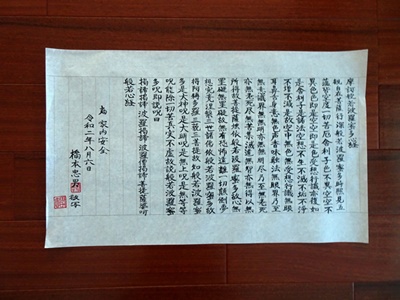 摩訶般若波羅蜜多心経
観自在菩薩行深般若波羅蜜多時照見五
蘊皆空度一切苦厄舎利子色不異空空不
異色色即是空空即是色受想行識亦復如
是舎利子是諸法空相不生不滅不垢不浄
不増不減是故空中無色無受想行識無眼
耳鼻舌身意無色声香味触法無眼界乃至
無意識界無無明亦無無明尽乃至無老死
亦無老死尽無苦集滅道無智亦無得以無
所得故菩提薩埵依般若波羅蜜多故心無
罣礙無罣礙故無有恐怖遠離一切顛倒夢
想究竟涅槃三世諸仏依般若波羅蜜多故
得阿耨多羅三藐三菩提故知般若波羅蜜
多是大神呪是大明呪是無上呪是無等等
呪能除一切苦真実不虚故説般若波羅蜜
多呪即説呪曰
羯諦羯諦波羅羯諦波羅僧羯諦菩提薩婆訶
般若心経
為 家内安全
令和二年八月六日
橋本忠男 敬写